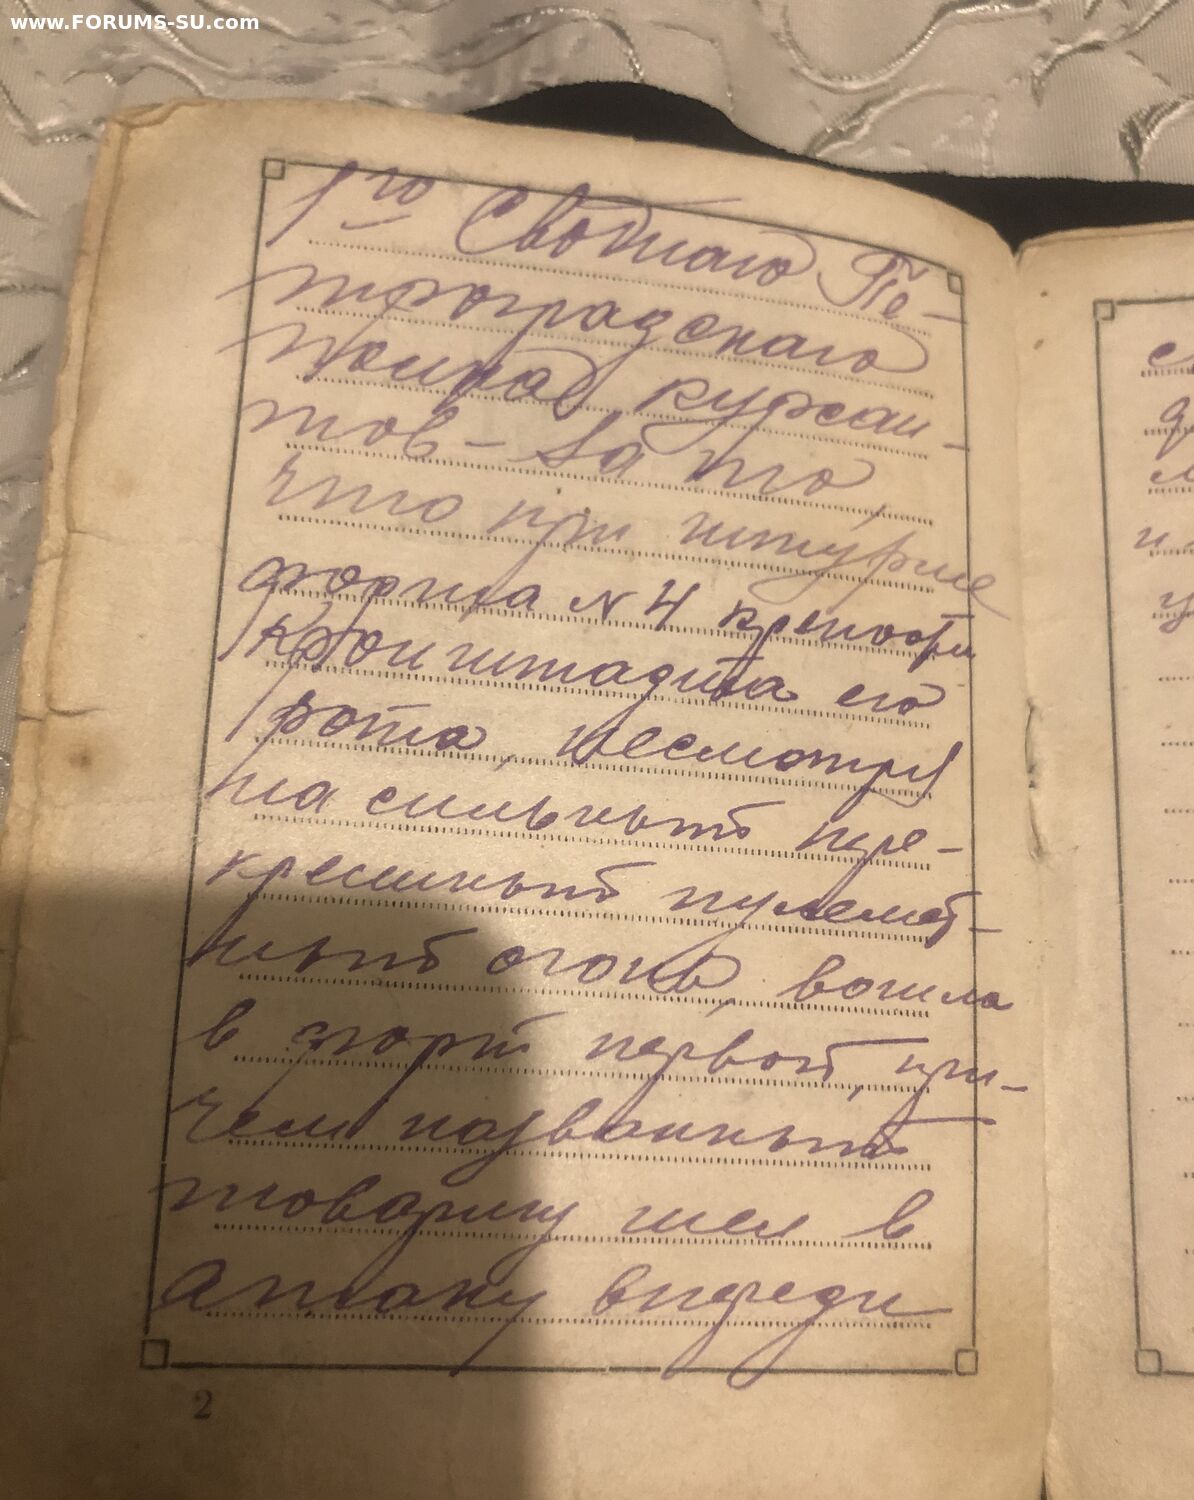 www.FORUMS-SU.com
1го Сводного Пе-
троградского
полка курсан-
тов – За то,
что при штурме
форта № 4 крепости
Кронштадта его
рота, несмотря
на сильный пере-
крестный пулемет-
ный огонь, вошла
в форт первой, при-
чем названный
товарищ шел в
атаку впереди
2